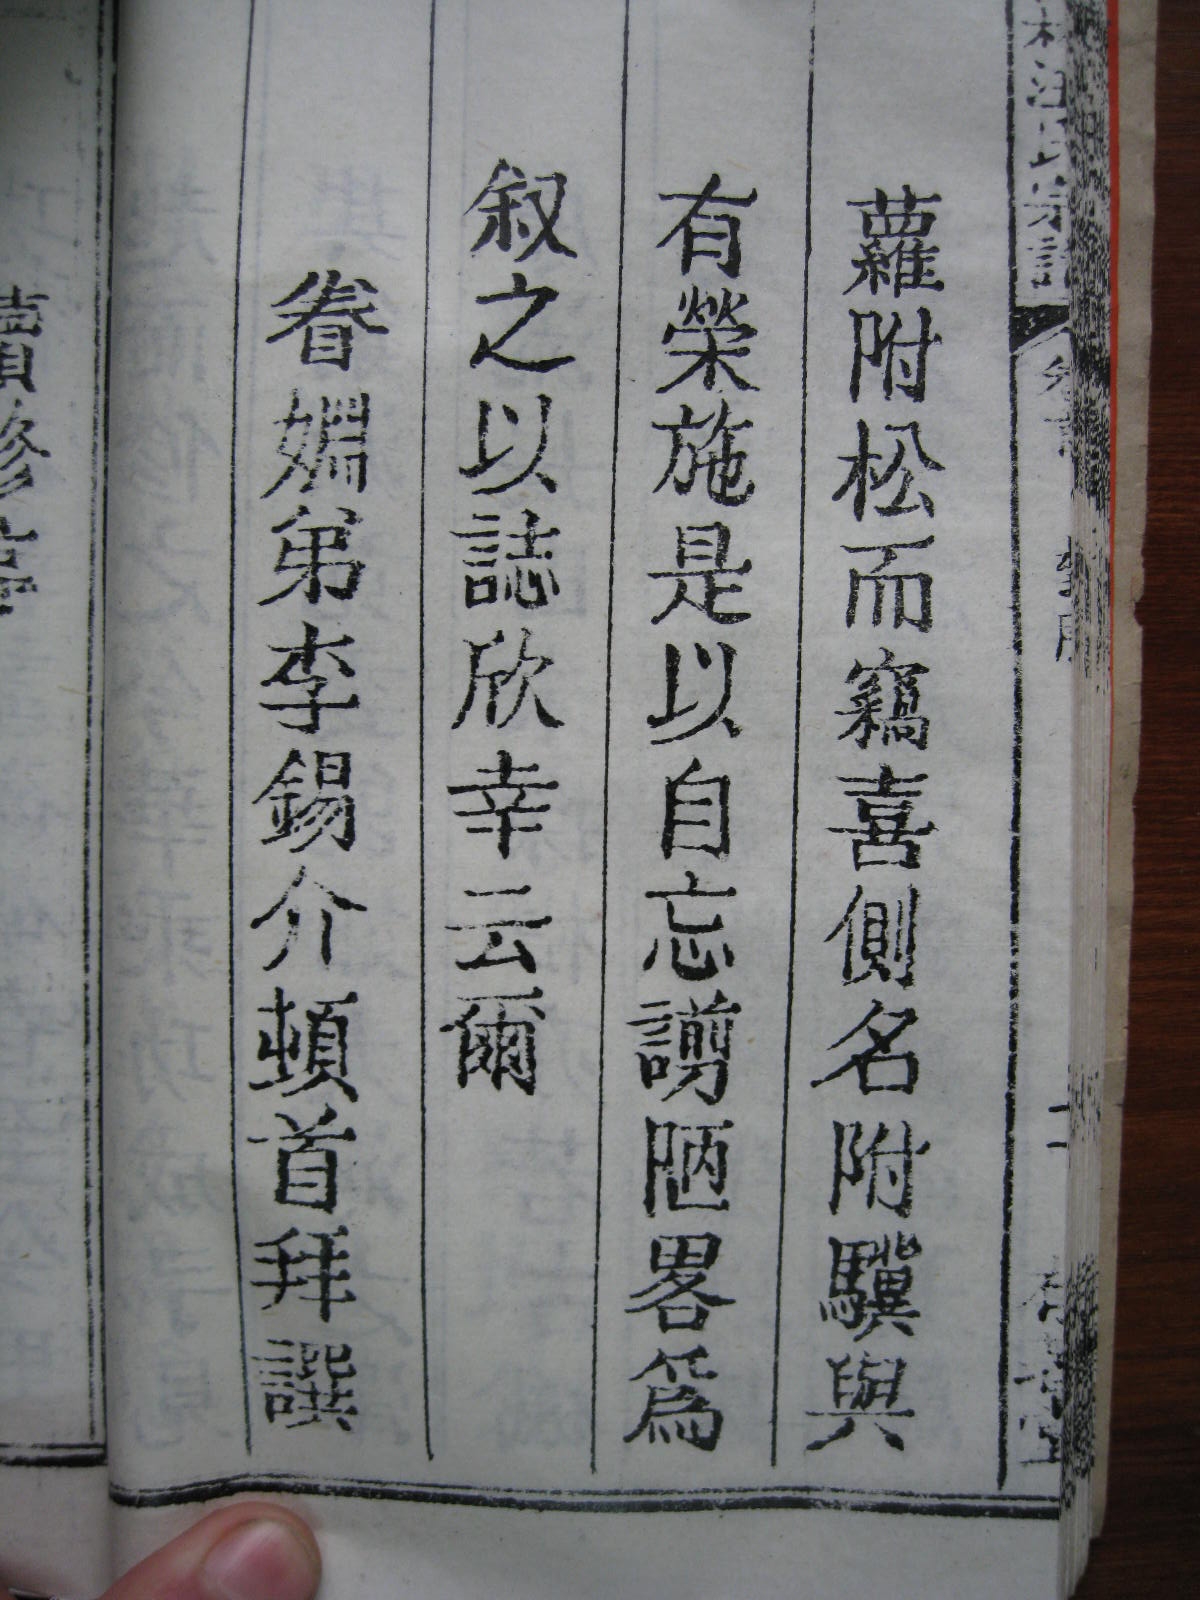 蘿附松而竊喜側名附驥與
有榮施是以自忘謭陋畧爲
叙之以誌欣幸云爾
眷婣弟李錫介頓首拜譔
續修